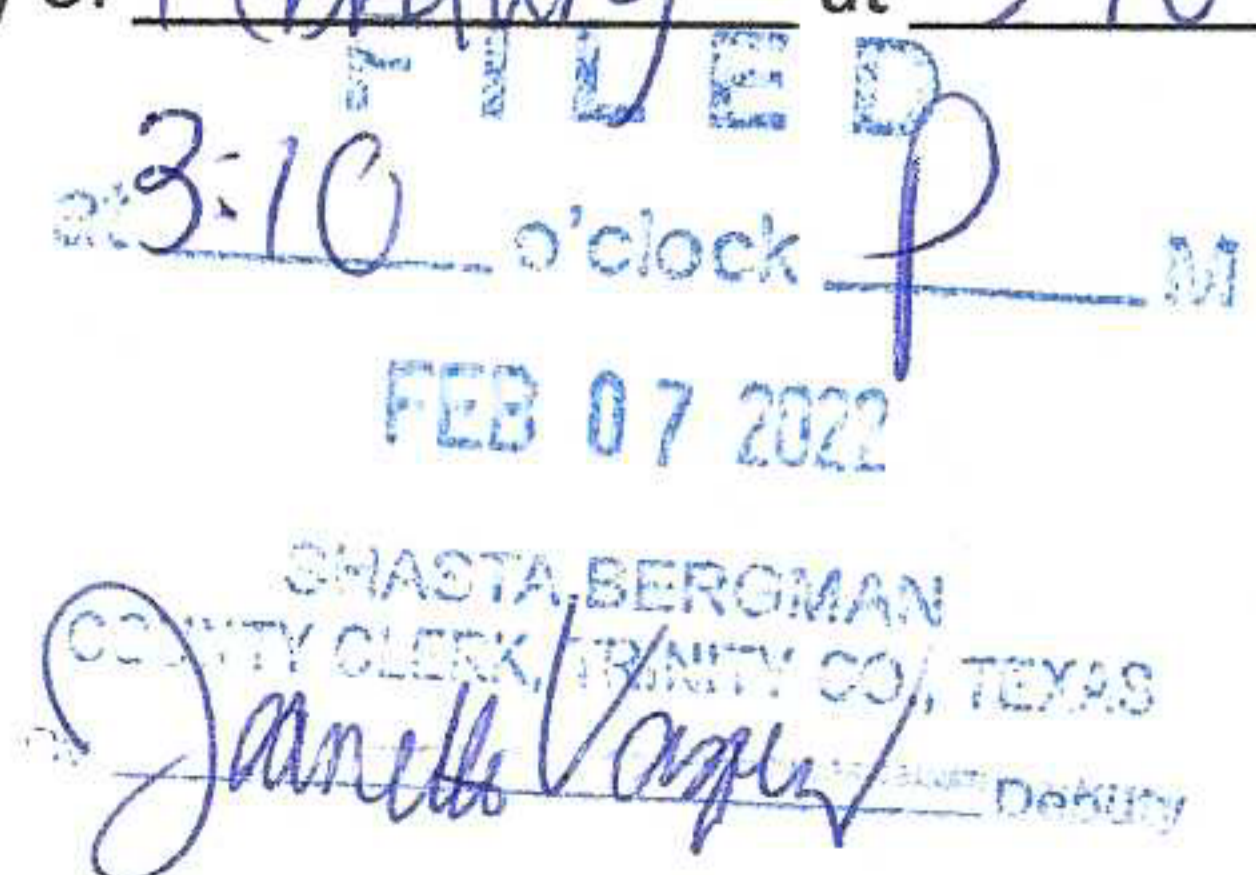 February at 3:10
FILED
at 3:10 o'clock P M
FEB 07 2022
SHASTA BERGMAN
COUNTY CLERK, TRINITY CO., TEXAS
By Janette Vazquez Deputy